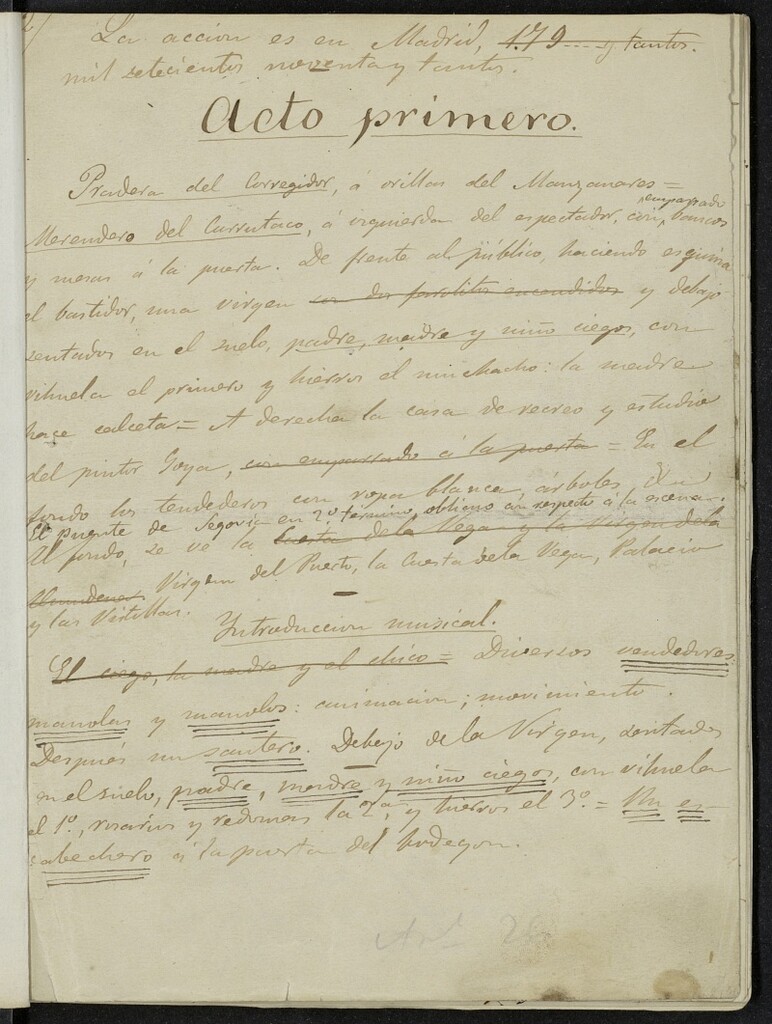 La accion es en Madrid, 179..... y tantos.
mil setecientos noventa y tantos.
Acto primero.
Pradera del Corregidor, á orillas del Manzanares =
emparrado
Merendero del Currutaco, á izquierda del espectador, con bancos
y mesas á la puerta. De frente al público, haciendo esquina
al bastidor, una virgen con dos farolitos encendidos y debajo
sentados en el suelo, padre, madre y niño ciegos, con
vihuela el primero y hierros el muchacho: la madre
hace calceta = A derecha la casa de recreo y estudio
del pintor Goya, con emparrado á la puerta = En el
fondo los tendederos con ropa blanca, árboles, &a
El puente de Segovia en 2º término, oblicuo con respecto á la escena.
Al fondo, se ve la Cuesta de la Vega y la Virgen de la
Almudena Virgen del Puerto, la Cuesta de la Vega, Palacio
y las Vistillas.
Introduccion musical.
El ciego, la madre y el chico = Diversos vendedores
manolas y manolos: animacion; movimiento.
Después un santero. Debajo de la Virgen, sentados
en el suelo, padre, madre y niño ciegos, con vihuela
el 1º, rosarios y redomas la 2ª, y hierros el 3º. = Un es-
cabechero á la puerta del bodegon.